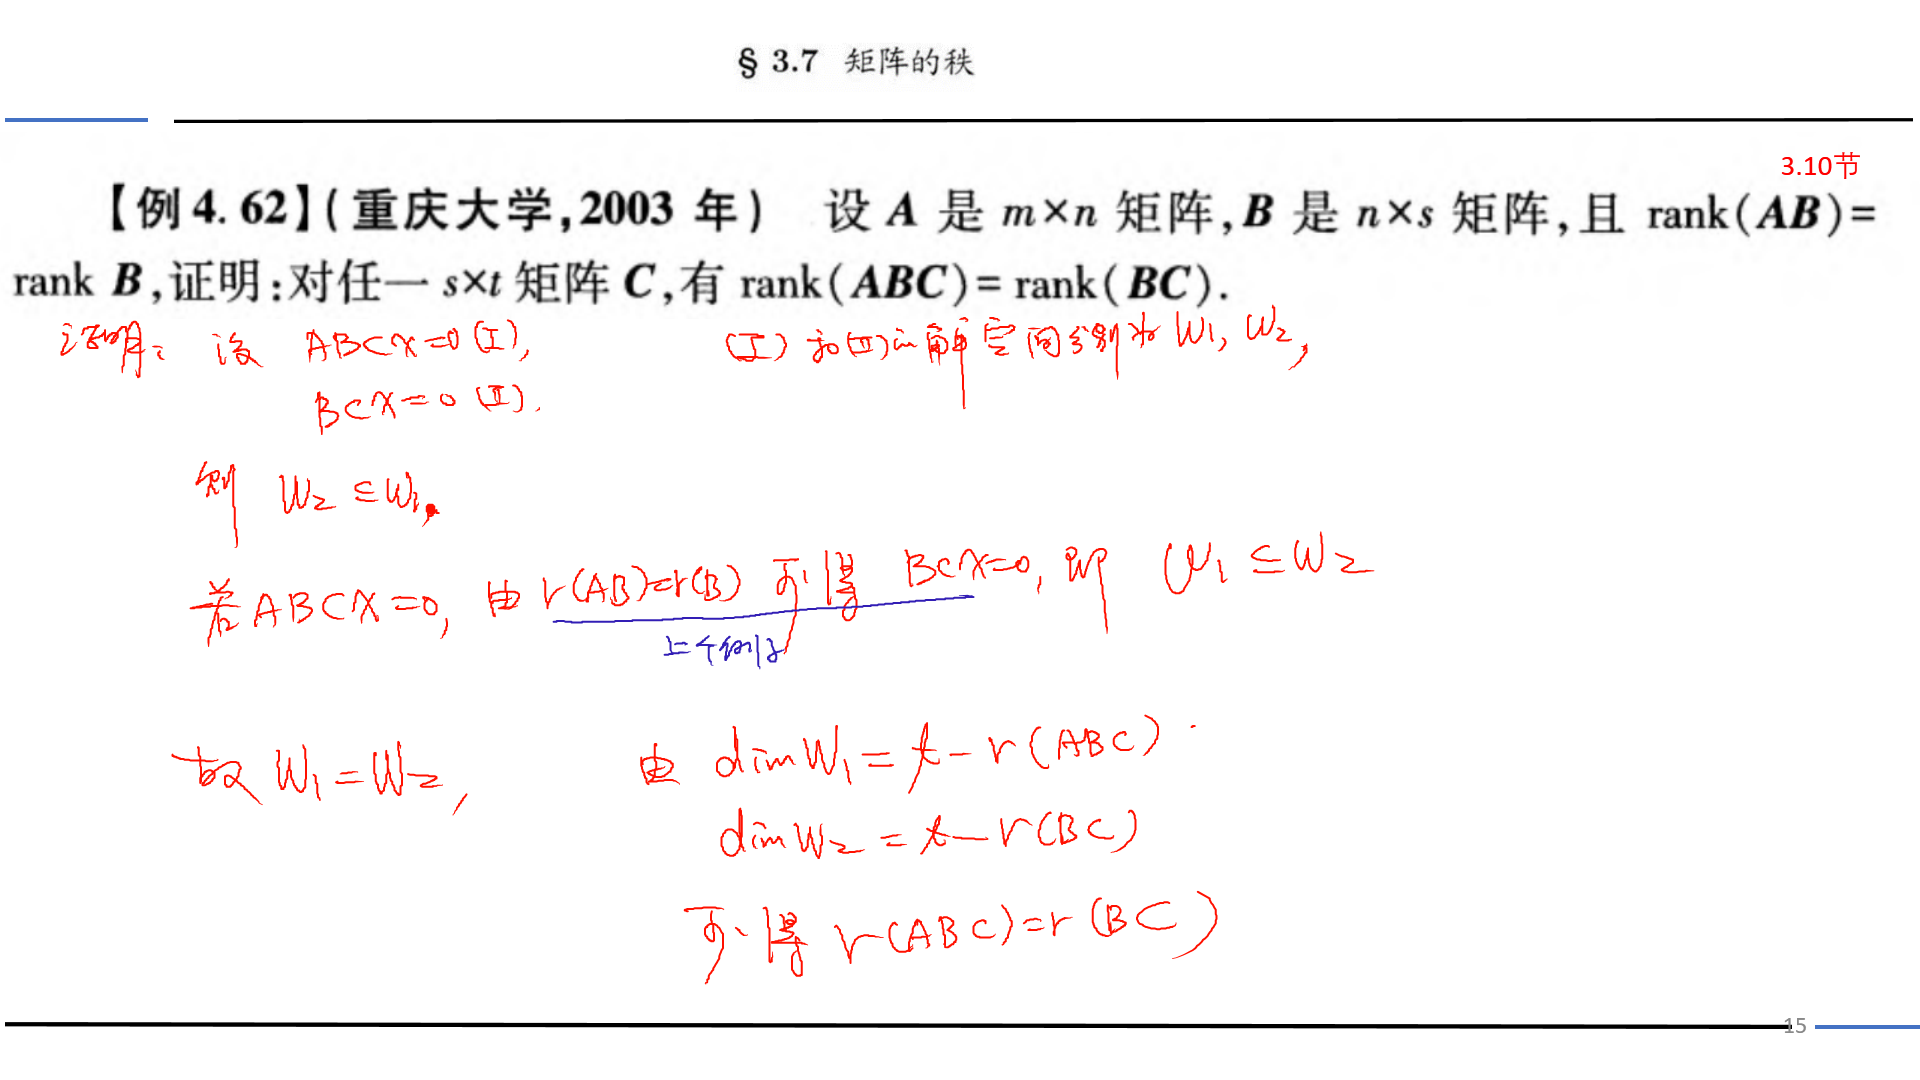 § 3.7 矩阵的秩
3.10节
【例 4.62】(重庆大学,2003 年) 设 A 是 m×n 矩阵,B 是 n×s 矩阵,且 rank(AB)=
rank B,证明:对任一 s×t 矩阵 C,有 rank(ABC)= rank(BC).
证明: 设 ABCX=0 (I), (I) 和(II)的解空间分别为 W₁, W₂,
BCX=0 (II).
则 W₂ ⊆ W₁,
若 ABCX=0, 由 r(AB)=r(B) 可得 BCX=0, 即 W₁ ⊆ W₂
上个例子
故 W₁=W₂, 由 dimW₁ = t-r(ABC)
dimW₂ = t-r(BC)
可得 r(ABC)=r(BC)
15